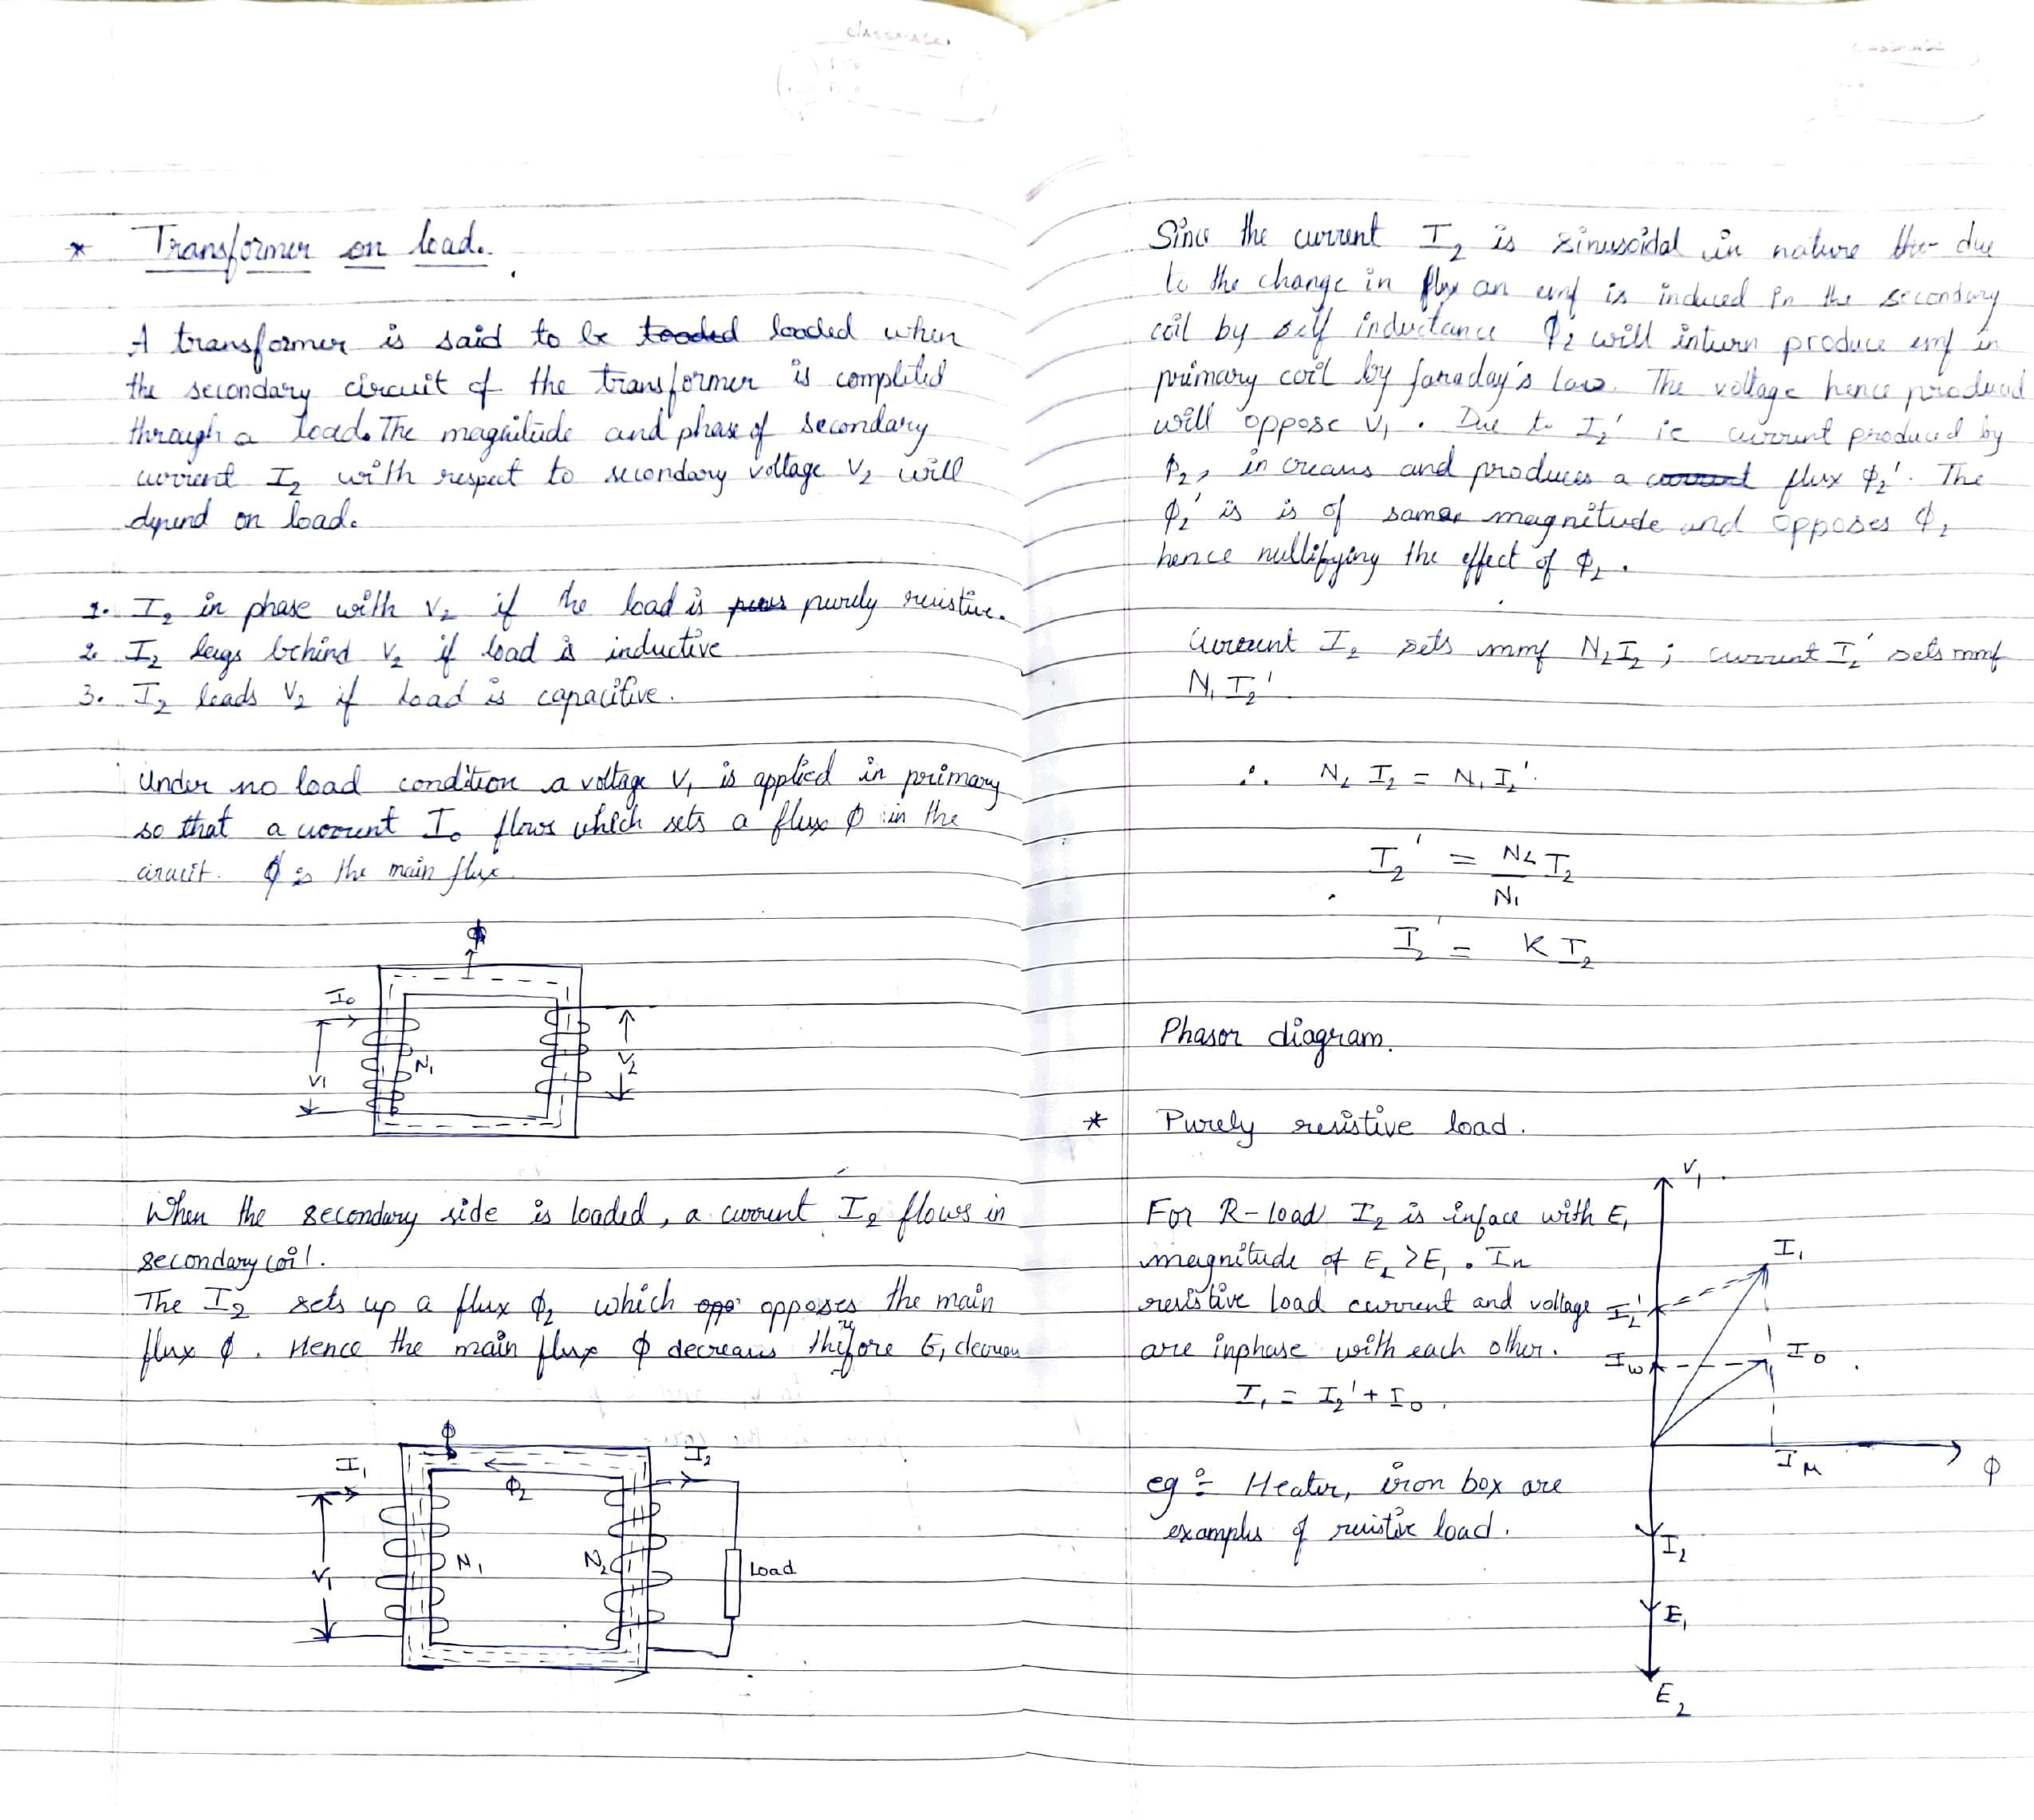 * Transformer on load.
A transformer is said to be looded loaded when
the secondary circuit of the transformer is complited
through a load. The magnitude and phase of secondary
current I₂ with respect to secondary voltage V₂ will
depend on load.
1. I₂ in phase with V₂ if the load is purely resistive.
2. I₂ lags behind V₂ if load is inductive
3. I₂ leads V₂ if load is capacitive.
Under no load condition a voltage V₁ is applied in primary
so that a current I₀ flows which sets a flux ϕ in the
circuit. ϕ is the main flux.
ϕ
I₀
V₁
N₁
V₂
When the secondary side is loaded, a current I₂ flows in
secondary coil.
The I₂ sets up a flux ϕ₂ which opp opposes the main
flux ϕ. Hence the main flux ϕ decreases thefore E₁ decreas
ϕ
I₁
I₂
ϕ₂
V₁
N₁
N₂
Load
Since the current I₂ is sinusoidal in nature due
to the change in flux an emf is induced in the secondary
coil by self inductance ϕ₂ will inturn produce emf in
primary coil by faraday's law. The voltage hence produced
will oppose V₁. Due to I₂' ie current produced by
ϕ₂, increaus and produces a current flux ϕ₂'. The
ϕ₂' is is of same magnitude and opposes ϕ₂
hence nullifying the effect of ϕ₂.
Current I₂ sets mmf N₂I₂; current I₂' sets mmf
N₁I₂'
∴ N₂I₂ = N₁I₂'.
I₂' = N₂ I₂
N₁
I₂' = K I₂
Phasor diagram.
* Purely resistive load.
For R-load I₂ is inface with E₁
magnitude of E₂ > E₁. In
resistive load current and voltage
are inphase with each other.
I₁ = I₂' + I₀.
eg:- Heater, iron box are
examples of resistive load.
V₁
I₁
I₂'
Iw
I₀
Iμ
ϕ
I₂
E₁
E₂